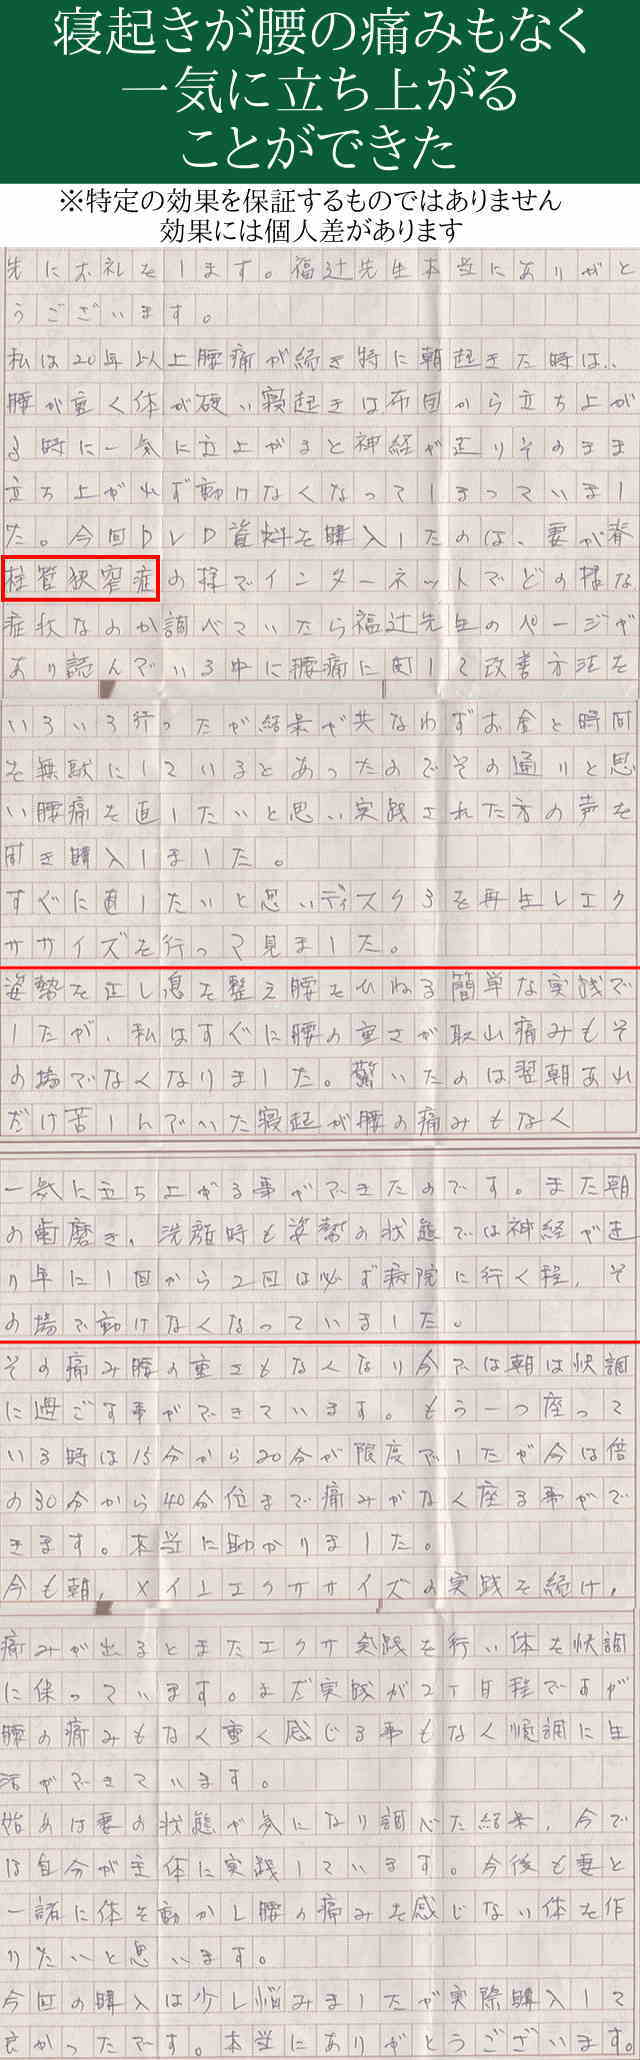 寝起きが腰の痛みもなく
一気に立ち上がる
ことができた
※特定の効果を保証するものではありません
効果には個人差があります
先にお礼をします。福辻先生本当にありがと
うございます。
私は20年以上腰痛が続き特に朝起きた時は、
腰が重く体が硬い寝起きは布団から立ち上が
る時に一気に立上がると神経が走りそのまま
立ち上がれず動けなくなってしまっていまし
た。今回DVD資料を購入したのは、妻が脊
柱管狭窄症の様でインターネットでどの様な
症状なのか調べていたら福辻先生のページが
あり読んでいる中に腰痛に関して改善方法を
いろいろ行ったが結果が共なわずお金と時間
を無駄にしているとあったのでその通りと思
い腰痛を直したいと思い実践された方の声を
聞き購入しました。
すぐに直したいと思いディスク3を再生しエク
ササイズを行って見ました。
姿勢を正し息を整え腰をひねる簡単な実践で
したが、私はすぐに腰の重さが取れ痛みもそ
の場でなくなりました。驚いたのは翌朝あれ
だけ苦しんでいた寝起が腰の痛みもなく
一気に立ち上がる事ができたのです。また朝
の歯磨き、洗顔時も姿勢の状態では神経が走
り年に1回から2回は必ず病院に行く程、そ
の場で動けなくなっていました。
その痛み腰の重さもなくなり今では朝は快調
に過ごす事ができています。もう一つ座って
いる時は15分から20分が限度でしたが今は倍
の30分から40分位まで痛みがなく座る事がで
きます。本当に助かりました。
今も朝、メインエクササイズの実践を続け、
痛みが出るとまたエクサ実践を行い体を快調
に保っています。まだ実践が2ヶ月程ですが
腰の痛みもなく重く感じる事もなく順調に生
活ができています。
始めは妻の状態が気になり調べた結果、今で
は自分が主体に実践しています。今後も妻と
一諸に体を動かし腰の痛みを感じない体を作
りたいと思います。
今回の購入は少し悩みましたが実際購入して
良かったです。本当にありがとうございます。